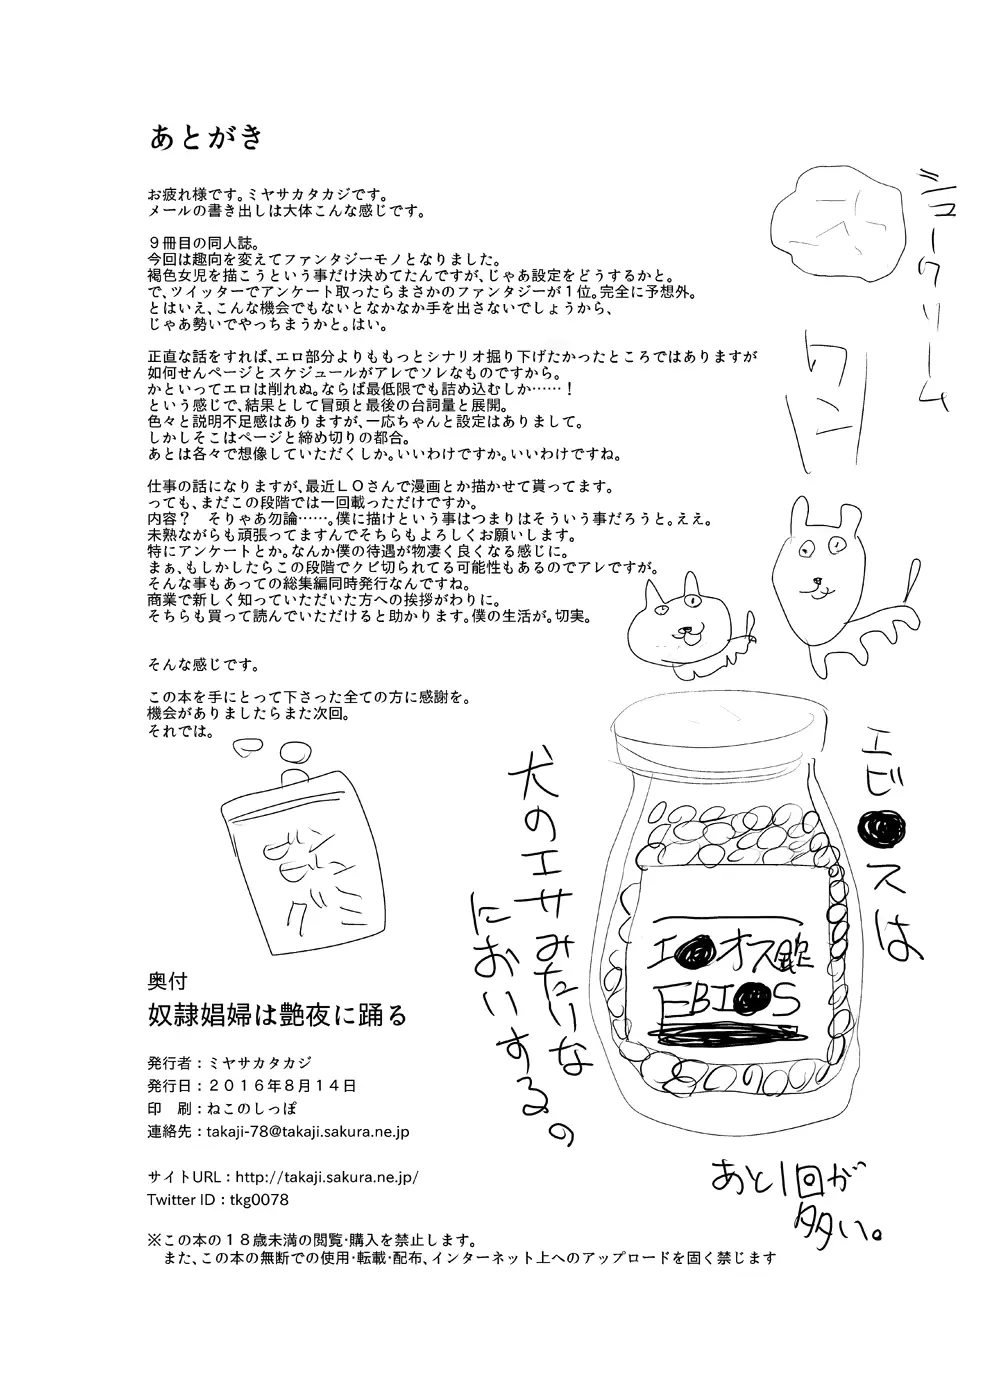 あとがき
お疲れ様です。ミヤサカタカジです。
メールの書き出しは大体こんな感じです。
９冊目の同人誌。
今回は趣向を変えてファンタジーモノとなりました。
褐色女児を描こうという事だけ決めてたんですが、じゃあ設定をどうするかと。
で、ツイッターでアンケート取ったらまさかのファンタジーが１位。完全に予想外。
とはいえ、こんな機会でもないとなかなか手を出さないでしょうから、
じゃあ勢いでやっちまうかと。はい。
正直な話をすれば、エロ部分よりももっとシナリオ掘り下げたかったところではありますが
如何せんページとスケジュールがアレでソレなものですから。
かといってエロは削れぬ。ならば最低限でも詰め込むしか……！
という感じで、結果として冒頭と最後の台詞量と展開。
色々と説明不足感はありますが、一応ちゃんと設定はありまして。
しかしそこはページと締め切りの都合。
あとは各々で想像していただくしか。いいわけですか。いいわけですね。
仕事の話になりますが、最近ＬＯさんで漫画とか描かせて貰ってます。
っても、まだこの段階では一回載っただけですか。
内容？　そりゃあ勿論……。僕に描けという事はつまりはそういう事だろうと。ええ。
未熟ながらも頑張ってますんでそちらもよろしくお願いします。
特にアンケートとか。なんか僕の待遇が物凄く良くなる感じに。
まぁ、もしかしたらこの段階でクビ切られてる可能性もあるのでアレですが。
そんな事もあっての総集編同時発行なんですね。
商業で新しく知っていただいた方への挨拶がわりに。
そちらも買って読んでいただけると助かります。僕の生活が。切実。
そんな感じです。
この本を手にとって下さった全ての方に感謝を。
機会がありましたらまた次回。
それでは。
シュークリーム
ワン
エビ●スは
犬のエサみたいな
においする。の
エ●オス錠
EBI●S
あと1回が
多い。
グミ
奥付
奴隷娼婦は艶夜に踊る
発行者：ミヤサカタカジ
発行日：２０１６年８月１４日
印　刷：ねこのしっぽ
連絡先：takaji-78@takaji.sakura.ne.jp
サイトURL：http://takaji.sakura.ne.jp/
Twitter ID：tkg0078
※この本の１８歳未満の閲覧・購入を禁止します。
また、この本の無断での使用・転載・配布、インターネット上へのアップロードを固く禁じます